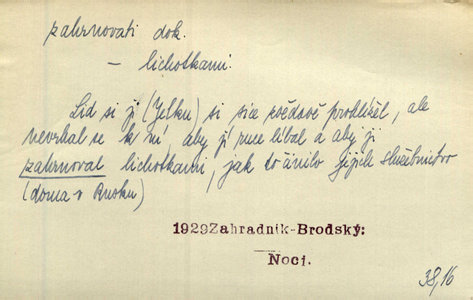 zahrnovati dok.
– lichotkami.
Lid si ji (Jelku) si sice zvědavě prohlížel, ale
nevrhal se k ní, aby jí ruce líbal a aby ji
zahrnoval lichotkami, jak to činilo jejich služebnictvo
(doma v Rusku)
1929Zahradník-Brodský:
Noci.
38,16